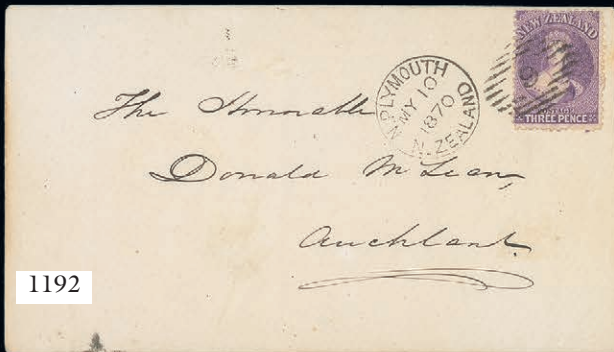 NEW ZEALAND
THREE PENCE
N.PLYMOUTH
MY 10
1870
N. ZEALAND
The Honorable
Donald McLean,
Auckland.
1192